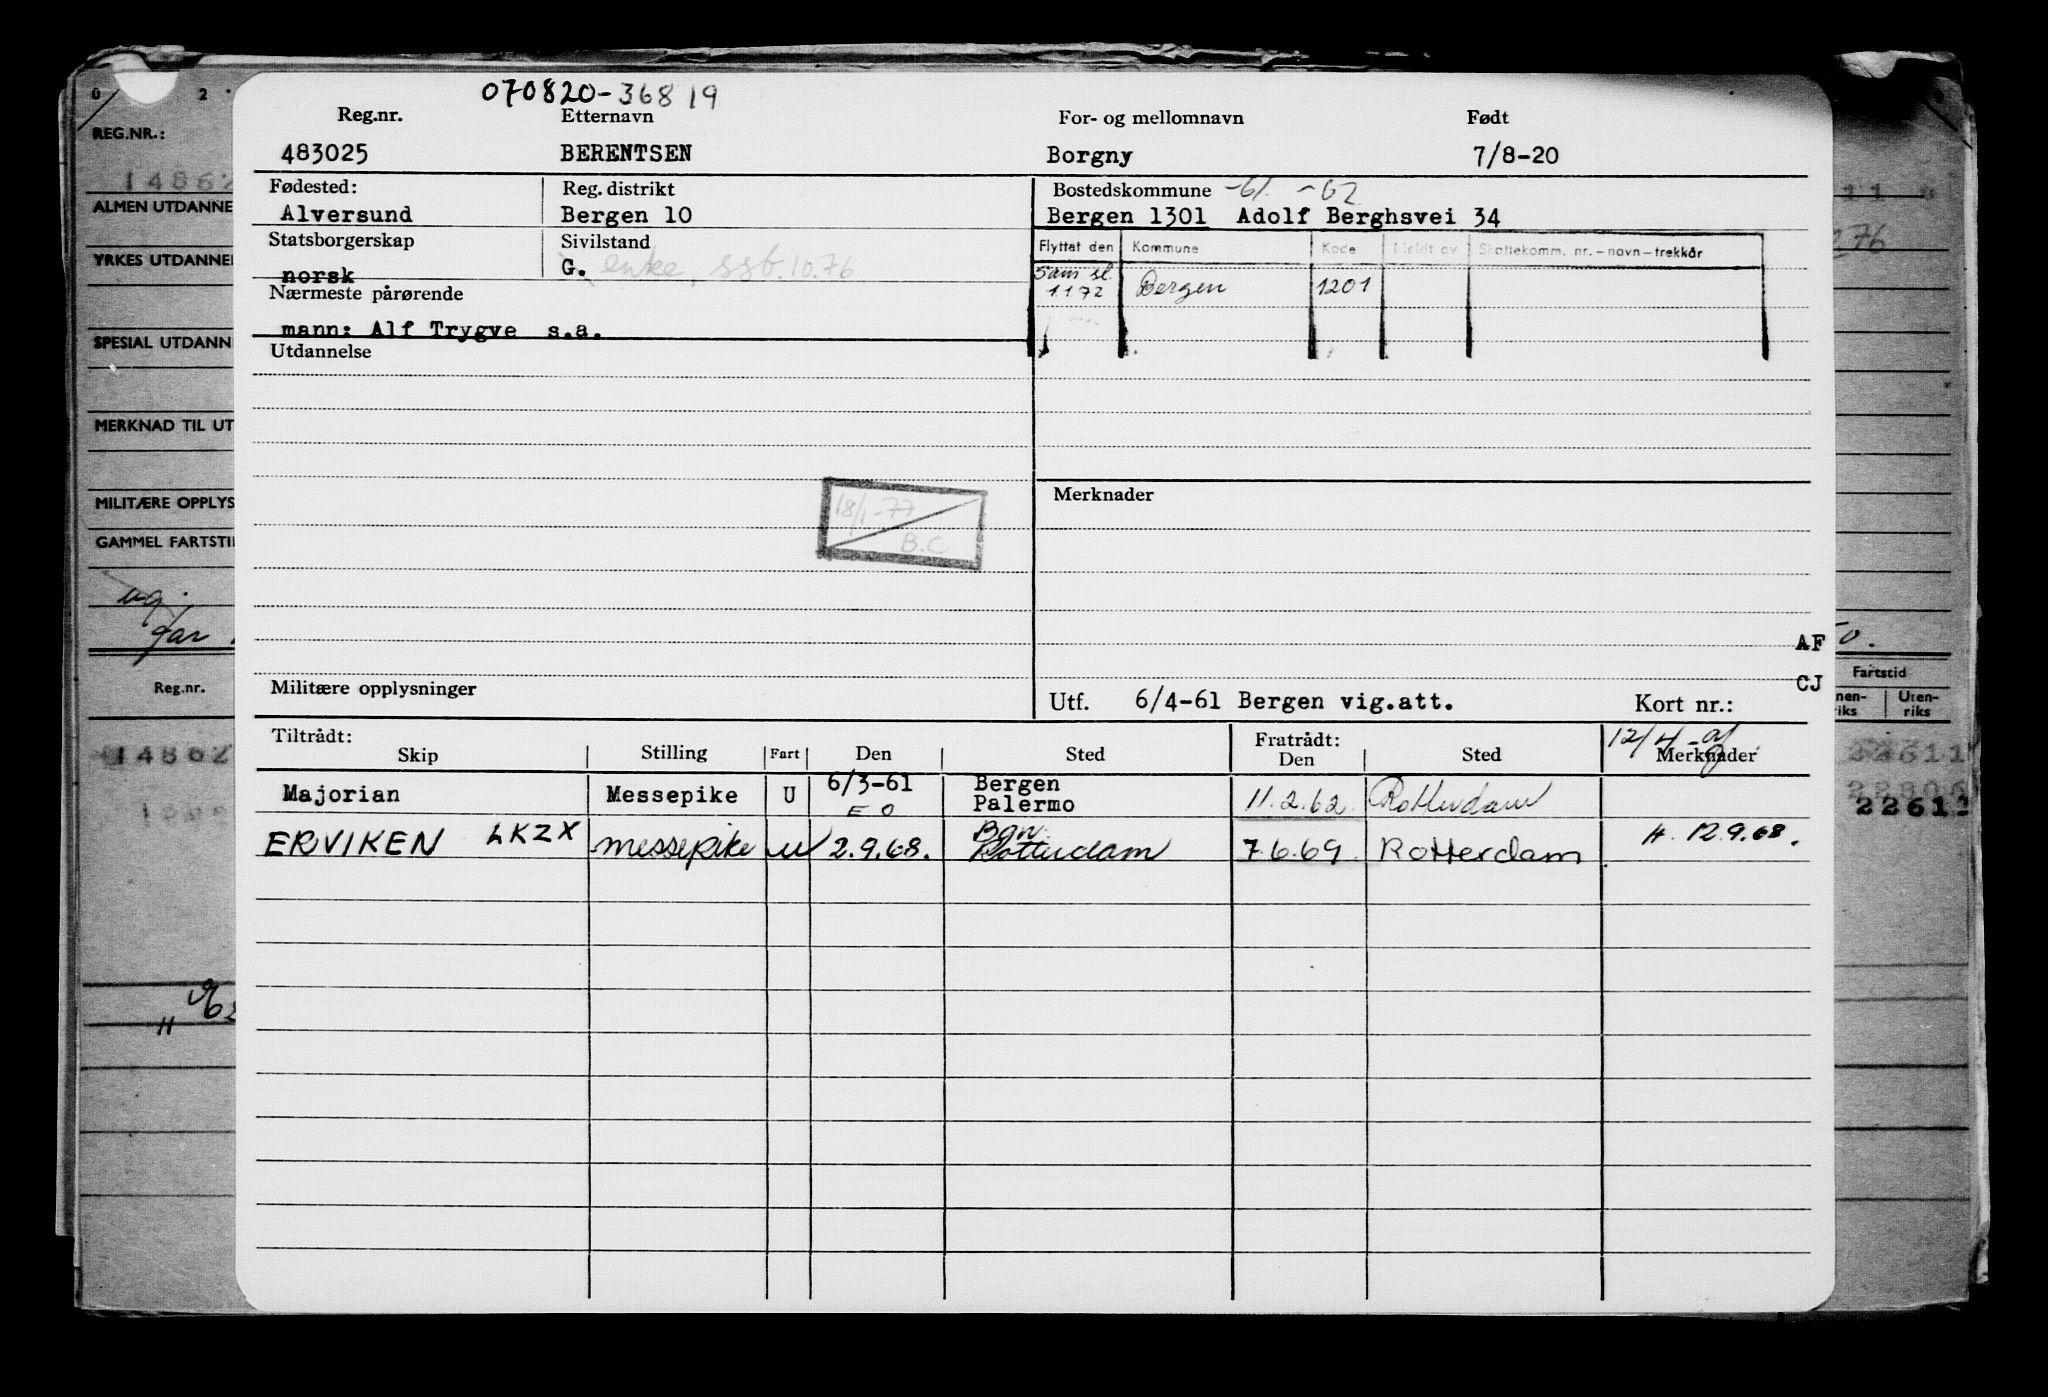 070820-36819
Reg.nr. Etternavn For- og mellomnavn Født
483025 BERENTSEN Borgny 7/8-20
Fødested: Reg. distrikt Bostedskommune -61. -62
Alversund Bergen 10 Bergen 1301 Adolf Berghsvei 34
Statsborgerskap Sivilstand Flyttet den Kommune Kode Meldt av Skattekomm. nr. - navn - trekkår
norsk G. enke, ssb. 10.76
Sam sl. 1172 Bergen 1201
Nærmeste pårørende
mann: Alf Trygve s.a.
Utdannelse
18/1-77
B.C
Merknader
AF
CJ
Militære opplysninger Utf. 6/4-61 Bergen vig.att. Kort nr.:
Tiltrådt: Fratrådt: 12/4-
Skip Stilling Fart Den Sted Den Sted Merknader
Majorian Messepike U 6/3-61 Bergen 11.2.62. Rotterdam
EO Palermo
ERVIKEN LKZX messepike u 2.9.68. Bgn. Rotterdam 7.6.69 Rotterdam H. 12.9.68.
0 2
REG.NR.:
14862
ALMEN UTDANNE
YRKES UTDANNE
SPESIAL UTDANN
MERKNAD TIL UT
MILITÆRE OPPLYS
GAMMEL FARTSTI
Reg.nr.
14862
11
76
Fartstid
nen- Uten-
riks riks
22611
22806
22611